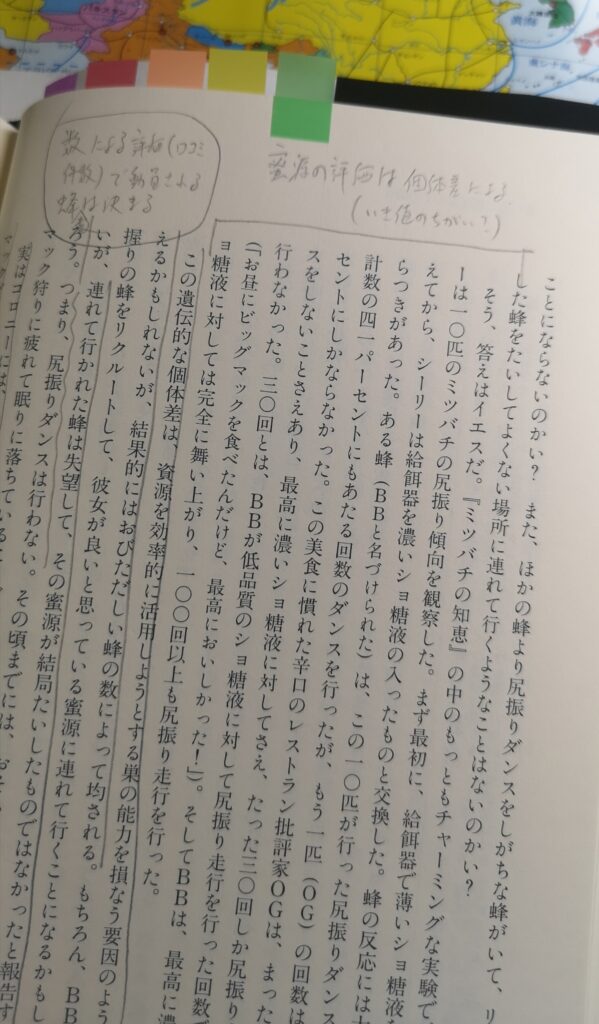 数による評価(口コミ
件数)で動員される
蜂は決まる
蜜源の評価は個体差による
(いき値のちがい?)
ことにならないのかい? また、ほかの蜂より尻振りダンスをしがちな蜂がいて、リ
した蜂をたいしてよくない場所に連れて行くようなことはないのかい?
そう、答えはイエスだ。『ミツバチの知恵』の中のもっともチャーミングな実験で、
ーは一〇匹のミツバチの尻振り傾向を観察した。まず最初に、給餌器で薄いショ糖液を
えてから、シーリーは給餌器を濃いショ糖液の入ったものと交換した。蜂の反応には大
らつきがあった。ある蜂(BBと名づけられた)は、この一〇匹が行った尻振りダンス
計数の四一パーセントにもあたる回数のダンスを行ったが、もう一匹(OG)の回数は
セントにしかならなかった。この美食に慣れた辛口のレストラン批評家OGは、まった
スをしないことさえあり、最高に濃いショ糖液に対してさえ、たった三〇回しか尻振り
行わなかった。三〇回とは、BBが低品質のショ糖液に対して尻振り走行を行った回数で
(「お昼にビッグマックを食べたんだけど、最高においしかった!」)。そしてBBは、最高に濃
ョ糖液に対しては完全に舞い上がり、一〇〇回以上も尻振り走行を行った。
この遺伝的な個体差は、資源を効率的に活用しようとする巣の能力を損なう要因のよう
えるかもしれないが、結果的にはおびただしい蜂の数によって均される。もちろん、BB
握りの蜂をリクルートして、彼女が良いと思っている蜜源に連れて行くことになるかもし
いが、連れて行かれた蜂は失望して、その蜜源が結局たいしたものではなかったと報告す
ろう。つまり、尻振りダンスは行わない。その頃までには、おそ
マック狩りに疲れて眠りに落ちている
実はコロニーには、